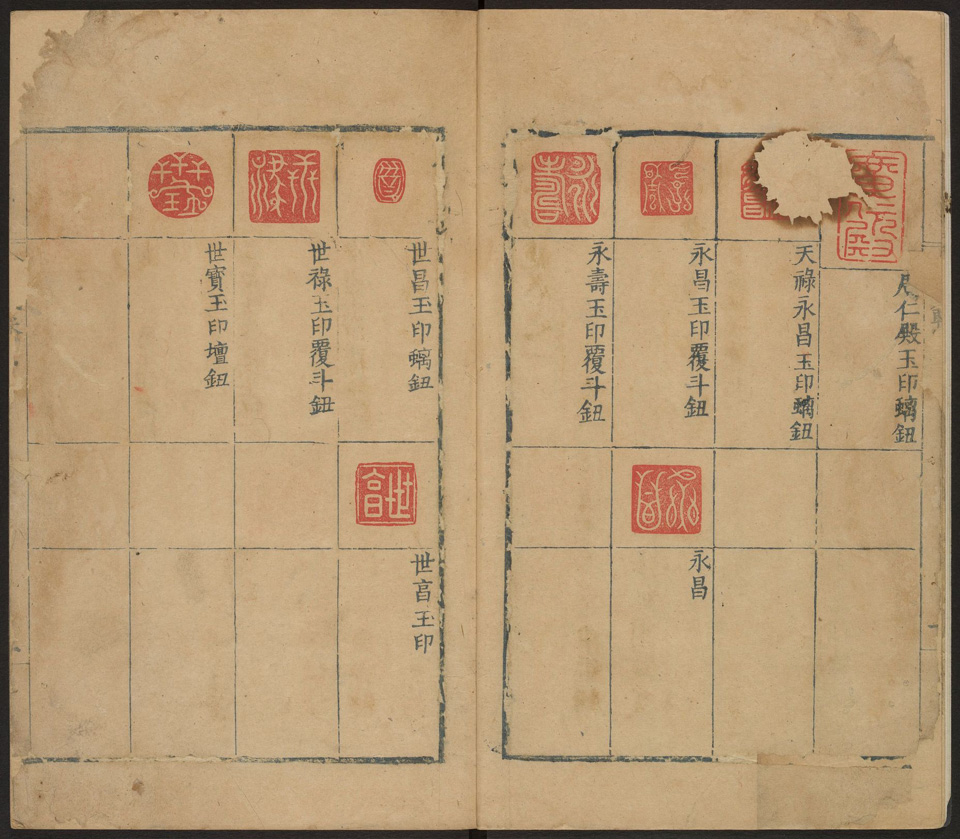 仁殿玉印螭鈕
天祿永昌玉印螭鈕
永昌玉印覆斗鈕
永壽玉印覆斗鈕
永昌
世昌玉印螭鈕
世祿玉印覆斗鈕
世寶玉印壇鈕
世亯玉印